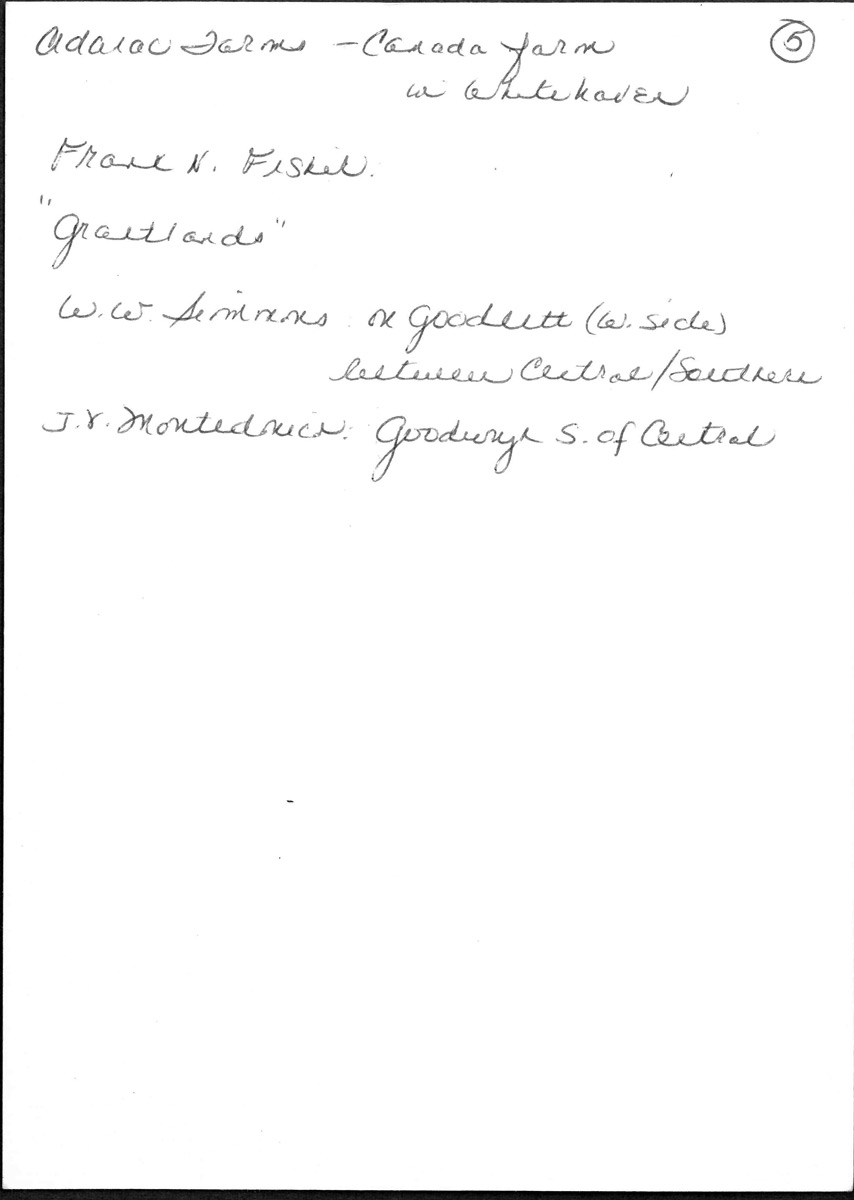 Adarac Farms - Canada farm 5
in Whitehaven
Frank N. Fisher.
"Grantlands"
W.W. Simmons on Goodlett (W. side)
between Central/Southern
J.V. Montedonico. Goodwyn S. of Central